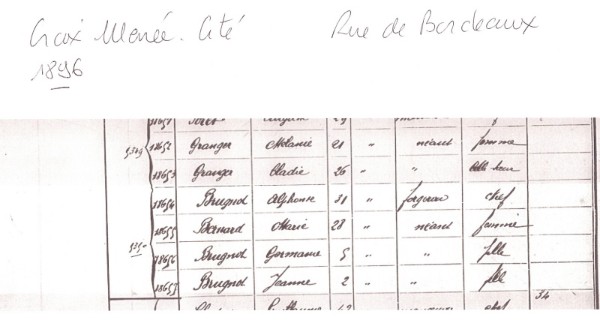 Croix Menée. Cité Rue de Bordeaux
1896
18652 Granger Mélanie 21 " néant femme
18653 Granger Cladie 26 " " belle-soeur
18654 Brugnot Alphonse 31 " forgeron chef
18655 Bernard Marie 28 " néant femme
18656 Brugnot Germaine 5 " " fille
18657 Brugnot Jeanne 2 " " fille
34